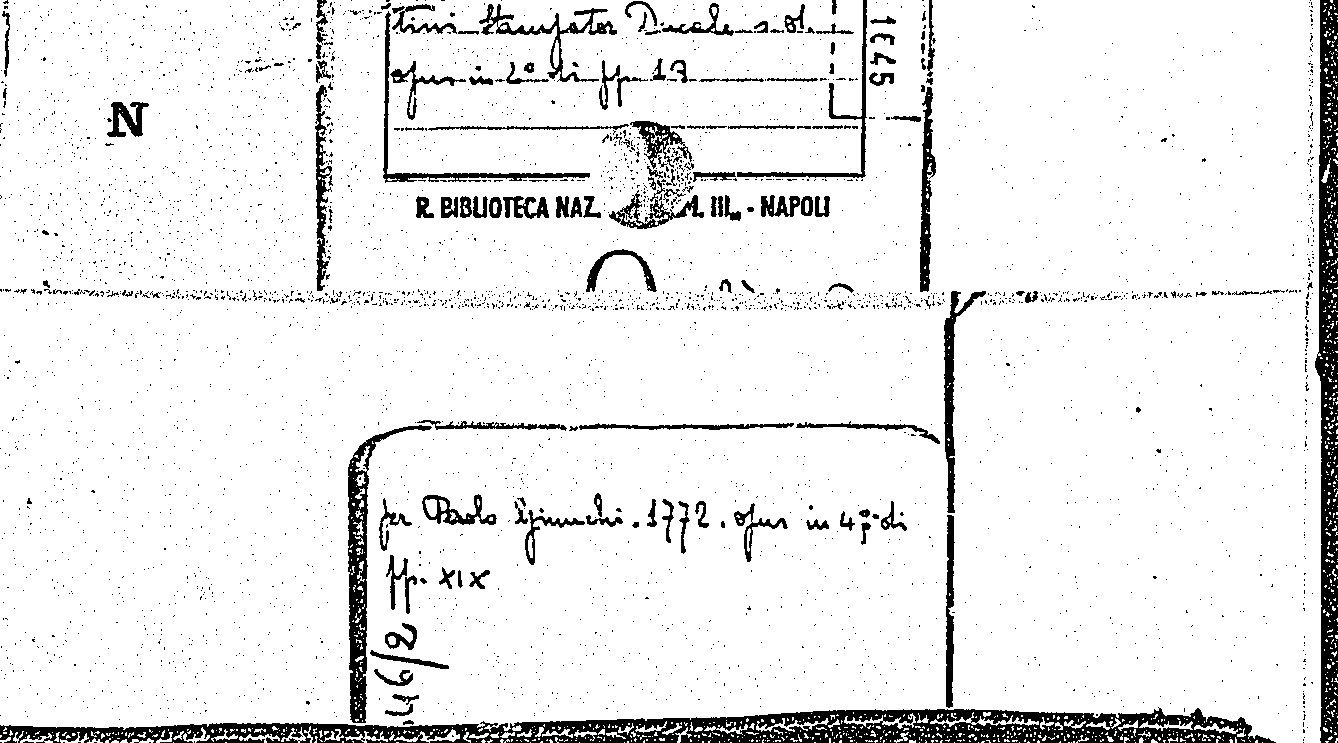 tini Stampator Ducale s.d.
opus in 2° di pp 17
1845
N
R. BIBLIOTECA NAZ. M. III„ - NAPOLI
per Paolo Giunchi. 1772. opus in 4° di
pp. XIX
46/2